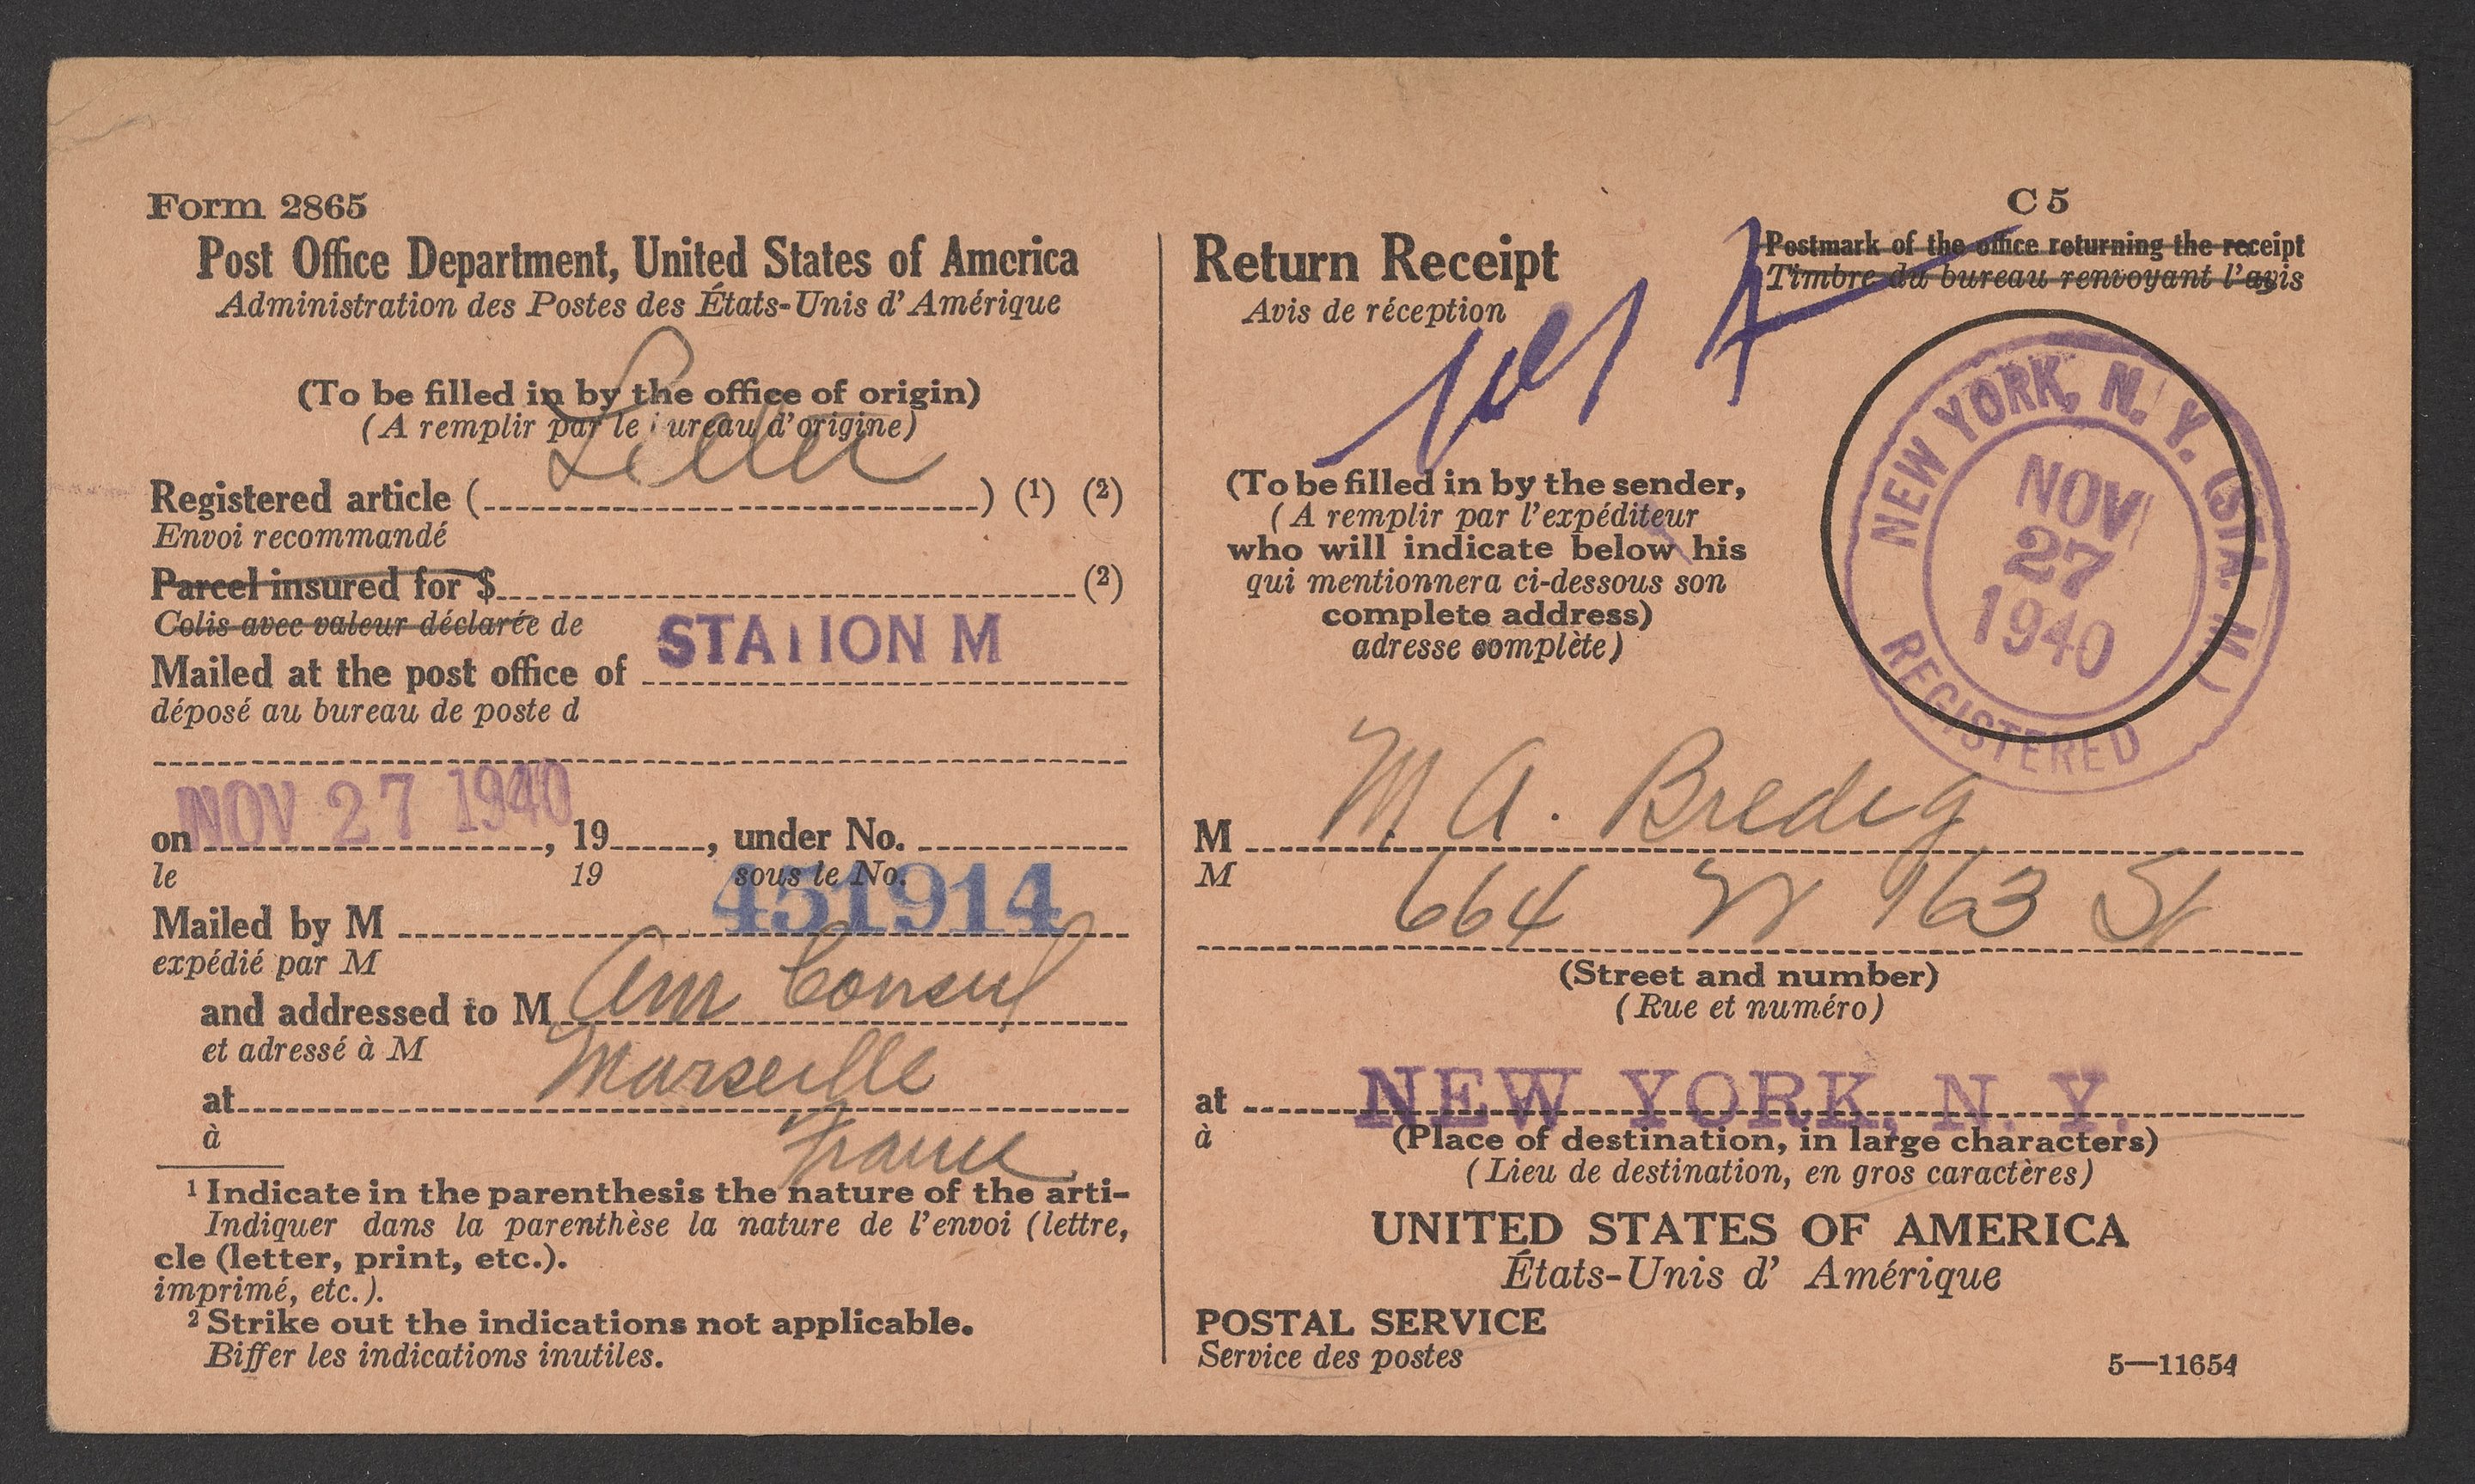 Form 2865
Post Office Department, United States of America
Administration des Postes des États-Unis d'Amérique
(To be filled in by the office of origin)
(A remplir par le ureau d'origine)
Letter
Registered article ( ) (1) (2)
Envoi recommandé
Parcel insured for $ (2)
Colis avec valeur déclarée de
STATION M
Mailed at the post office of
déposé au bureau de poste d
NOV 27 1940
on , 19 , under No.
le 19 sous le No.
451914
Mailed by M
expédié par M
and addressed to M Am Consul
et adressé à M
Marseille
at
à
France
1 Indicate in the parenthesis the nature of the arti-
Indiquer dans la parenthèse la nature de l'envoi (lettre,
cle (letter, print, etc.).
imprimé, etc.).
2 Strike out the indications not applicable.
Biffer les indications inutiles.
C 5
Return Receipt
Avis de réception
Postmark of the office returning the receipt
Timbre du bureau renvoyant l'avis
NEW YORK, N. Y. (STA. M)
NOV
27
1940
REGISTERED
(To be filled in by the sender,
(A remplir par l'expéditeur
who will indicate below his
qui mentionnera ci-dessous son
complete address)
adresse complète)
M M A. Bredig
M
664 W 163 St
(Street and number)
(Rue et numéro)
at NEW YORK, N. Y.
à
(Place of destination, in large characters)
(Lieu de destination, en gros caractères)
UNITED STATES OF AMERICA
États-Unis d' Amérique
POSTAL SERVICE
Service des postes
5—11654